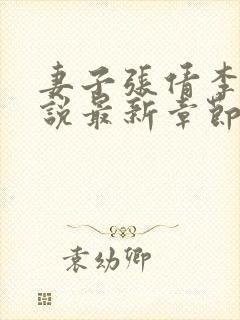 妻子張倩李
說最新章節
袁幼卿